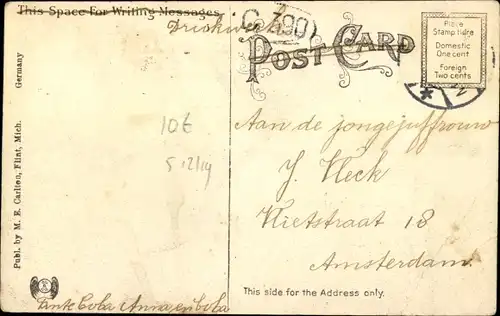 This Space For Writing Messages
Drukwerk
POST CARD
Place
Stamp Here
Domestic
One cent
Foreign
Two cents
Germany
Publ. by M. E. Carlton, Flint, Mich.
10E
5 12/14
Aan de jongejuffrouw
J. Vleck
Vlietstraat 18
Amsterdam.
This side for the Address only.
Tante Coba Anna en Cola